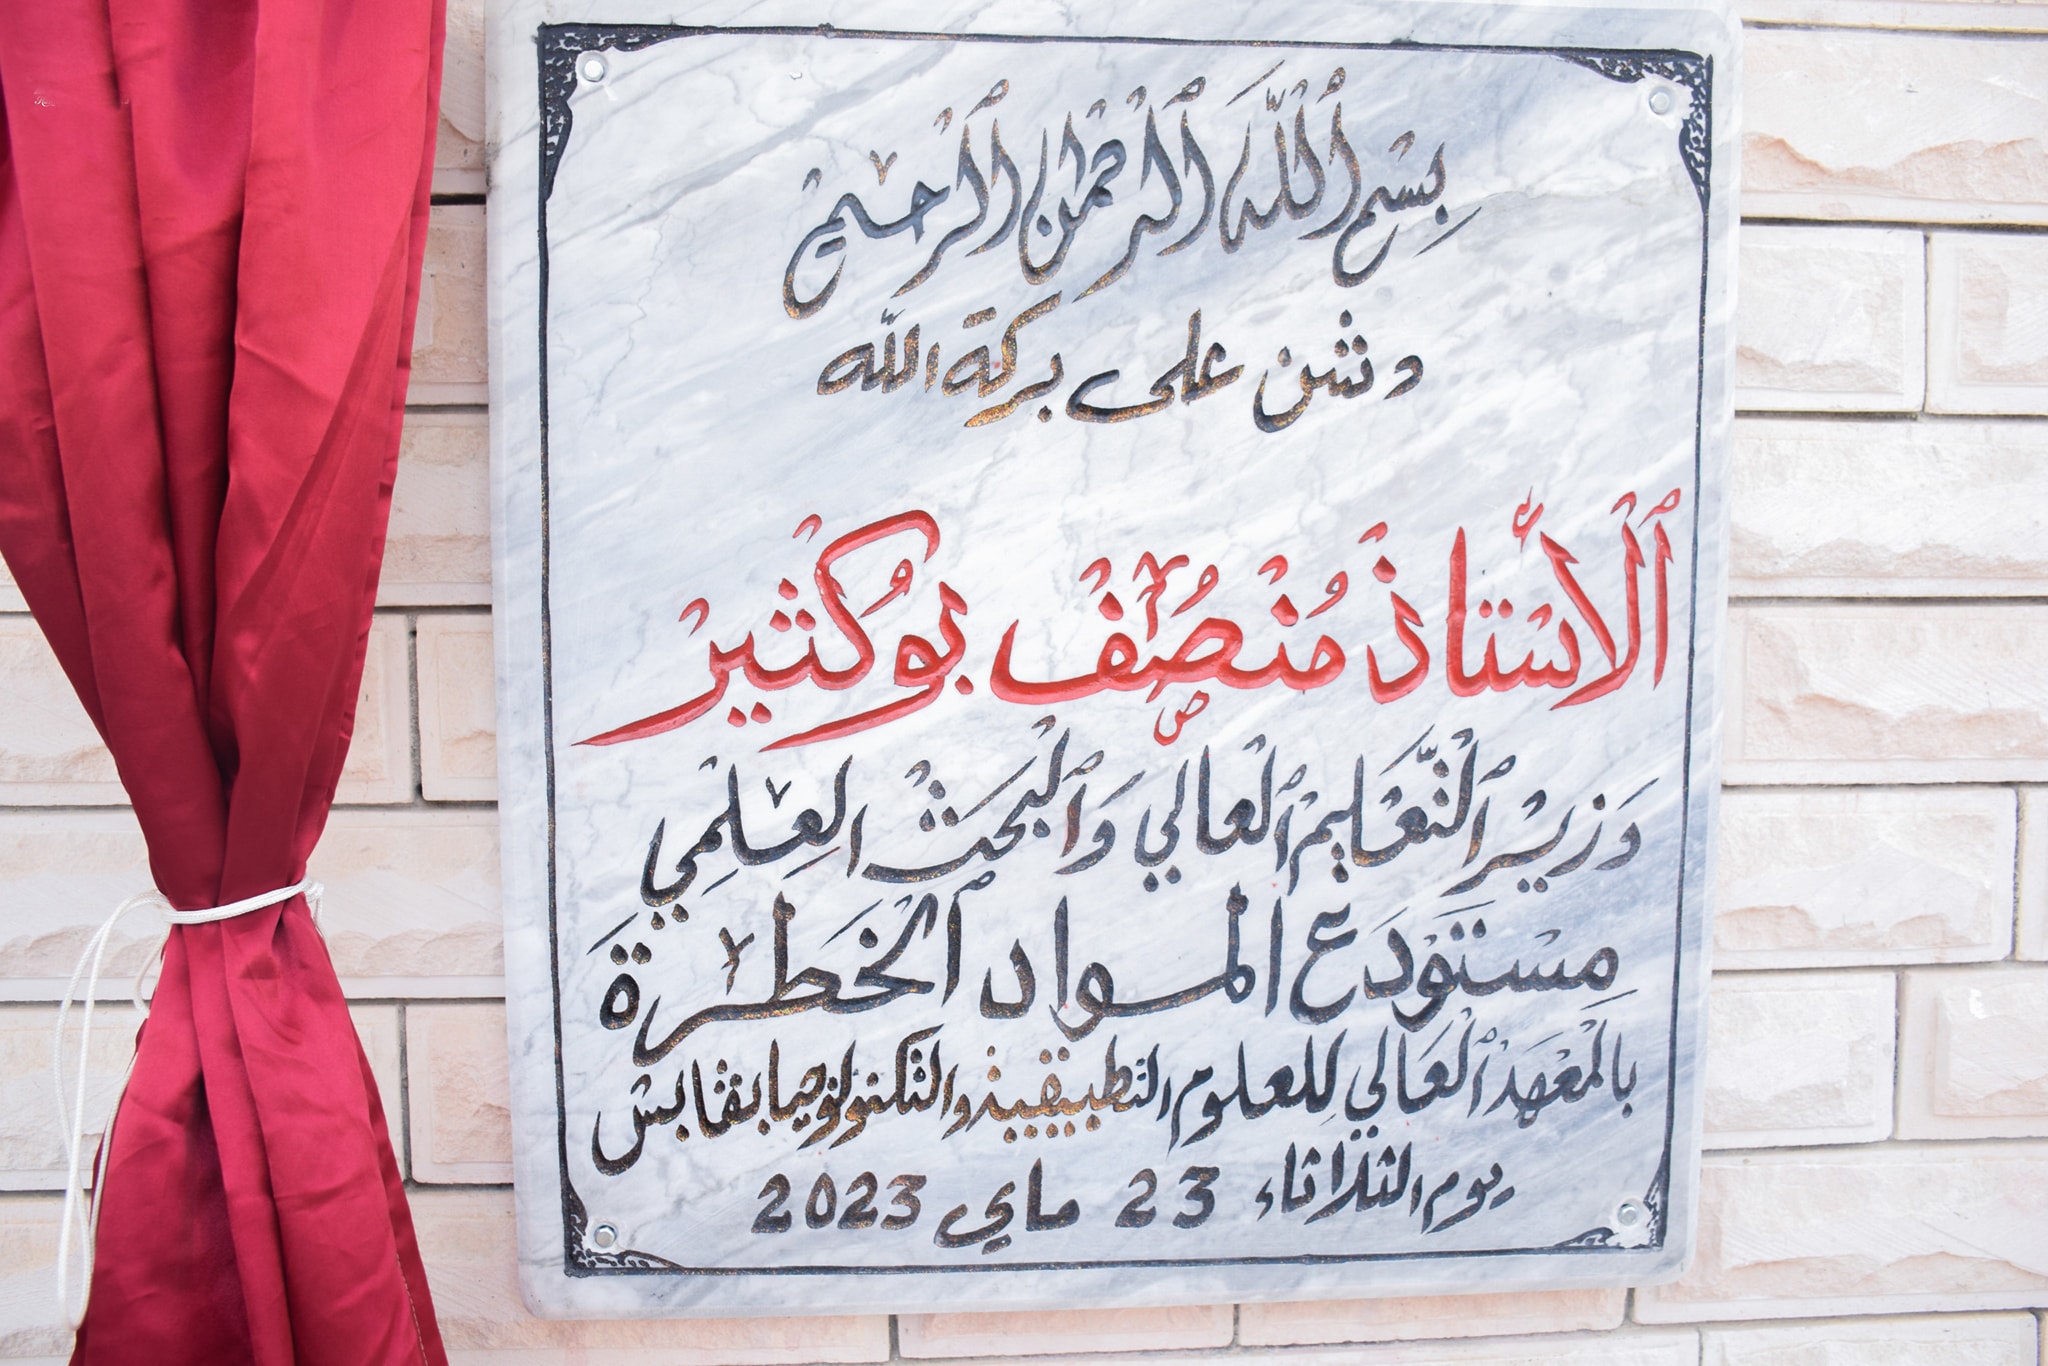 بِسْمِ ٱللَّهِ ٱلرَّحْمٰنِ ٱلرَّحِيمِ
دشن على بركة الله
ٱلْأُسْتَاذْ مُنْصُفْ بُوكُثَيْر
وَزِيرْ ٱلتَّعْلِيمْ ٱلْعَالِي وَٱلْبَحَثْ العِلْمِي
مِسْتَوْدَع المواد ٱلْخَطِرَة
بِالْمَعْهَدْ ٱلْعَالِي لِلعلوم التطبيقية والتكنولوجيا بقابس
يوم الثلاثاء 23 ماي 2023